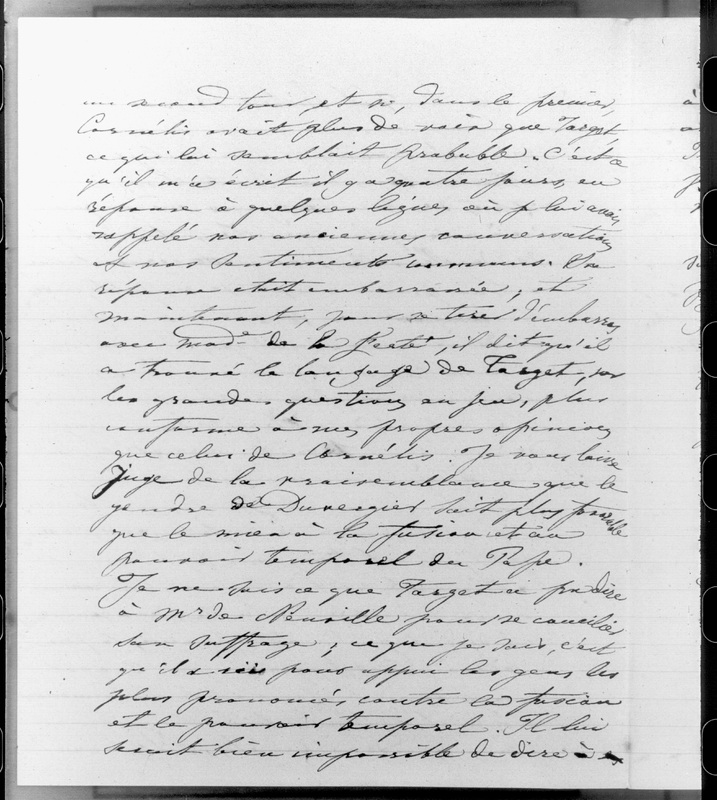 un second tour, et si, dans le premier,
Cornélis avait plus de voix que Target
ce qui lui semblait probable. C'est ce
qu'il m'a écrit il y a quatre jours, en
réponse à quelques lignes où je lui avais
rappelé nos anciennes conversations
et nos sentiments communs. Sa
réponse était embarrassée, et
maintenant, pour se tirer d'embarras
avec Made de la , il dit qu'il
a trouvé le langage de Target, sur
les grandes questions en jeu, plus
conforme à mes propres opinions
que celui de Cornélis. Je vous laisse
juge de la vraisemblance que le
gendre de Duvergier soit plus favorable
que le mien à la fusion et au
pouvoir temporel du Pape.
Je ne sais ce que Target a pu dire
à Mr de Neuville pour se concilier
son suffrage ; ce que je sais, c'est
qu'il a pour appui les gens les
plus prononcés contre la fusion
et le pouvoir temporel. Il lui
serait bien impossible de dire à